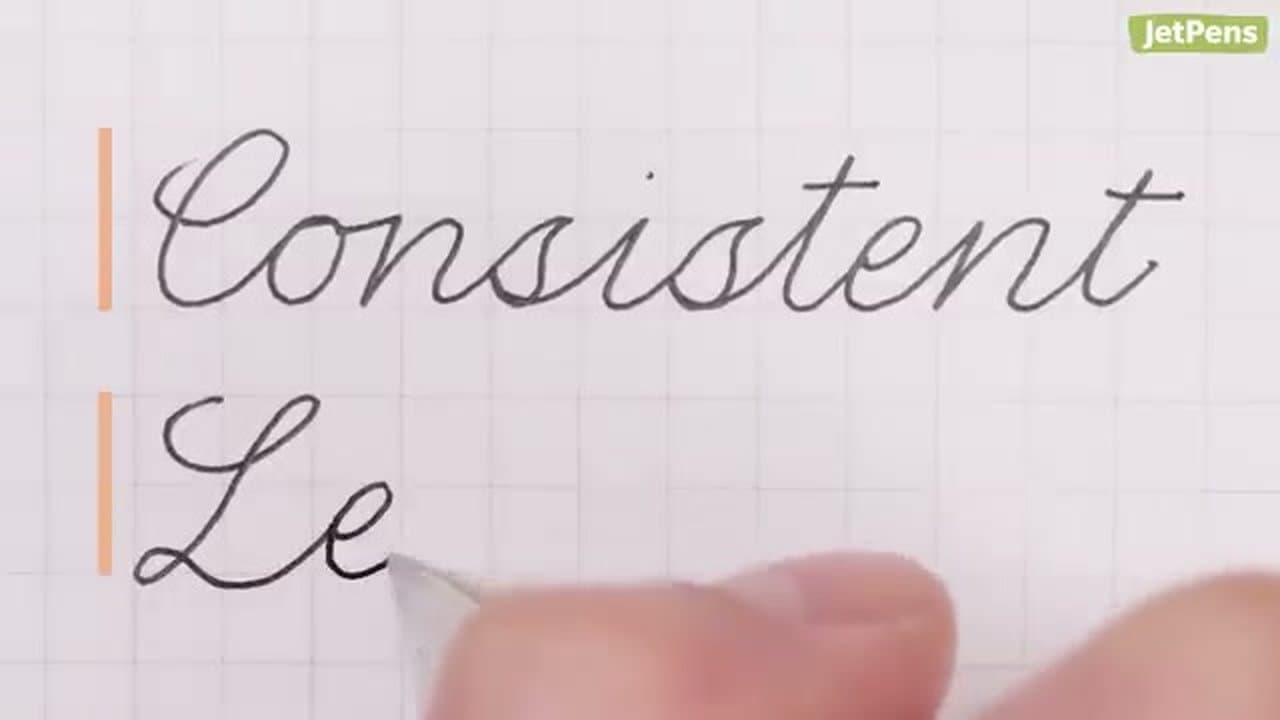 JetPens
Consistent
Le